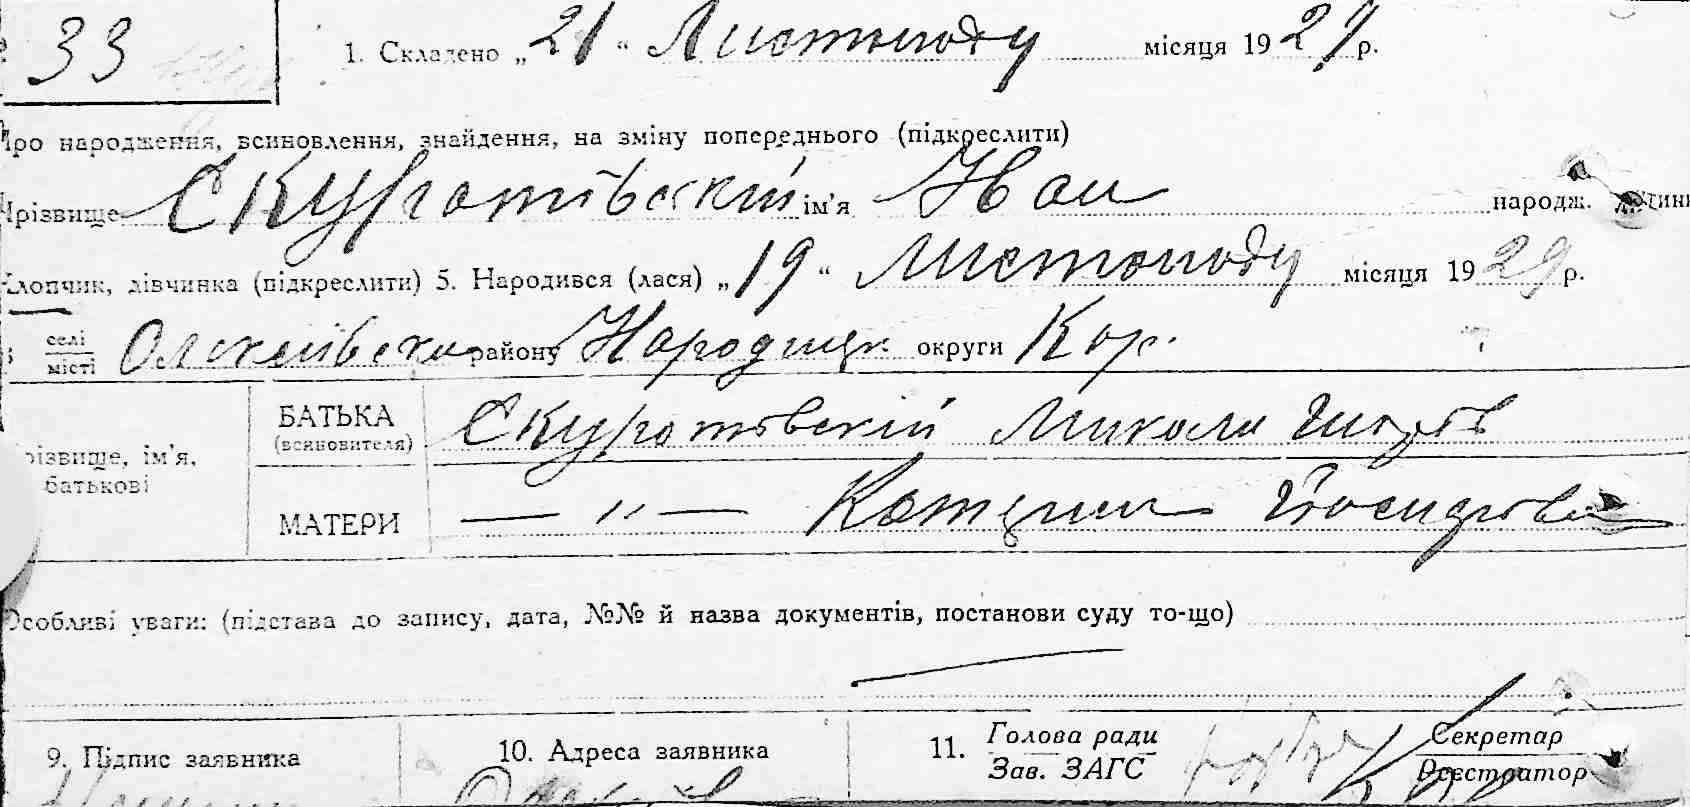 33
1. Складено „ 21 “ Листопаду місяця 1929 р.
Про народження, всиновлення, знайдення, на зміну попереднього (підкреслити)
Прізвище Скуротівский ім'я Иван народж. дитини
Хлопчик, дівчинка (підкреслити) 5. Народився (лася) „ 19 “ Листопаду місяця 1929 р.
В селі
місті Олексіївка району Народицк. округи Кор.
БАТЬКА
(всиновителя) Скуротівский Микола
Прізвище, ім'я,
батькові
МАТЕРИ — " — Катерина Йосипова
Особливі уваги: (підстава до запису, дата, №№ й назва документів, постанови суду то-що)
9. Підпис заявника
10. Адреса заявника
11. Голова ради
Зав. ЗАГС
Секретар
Реєстратор